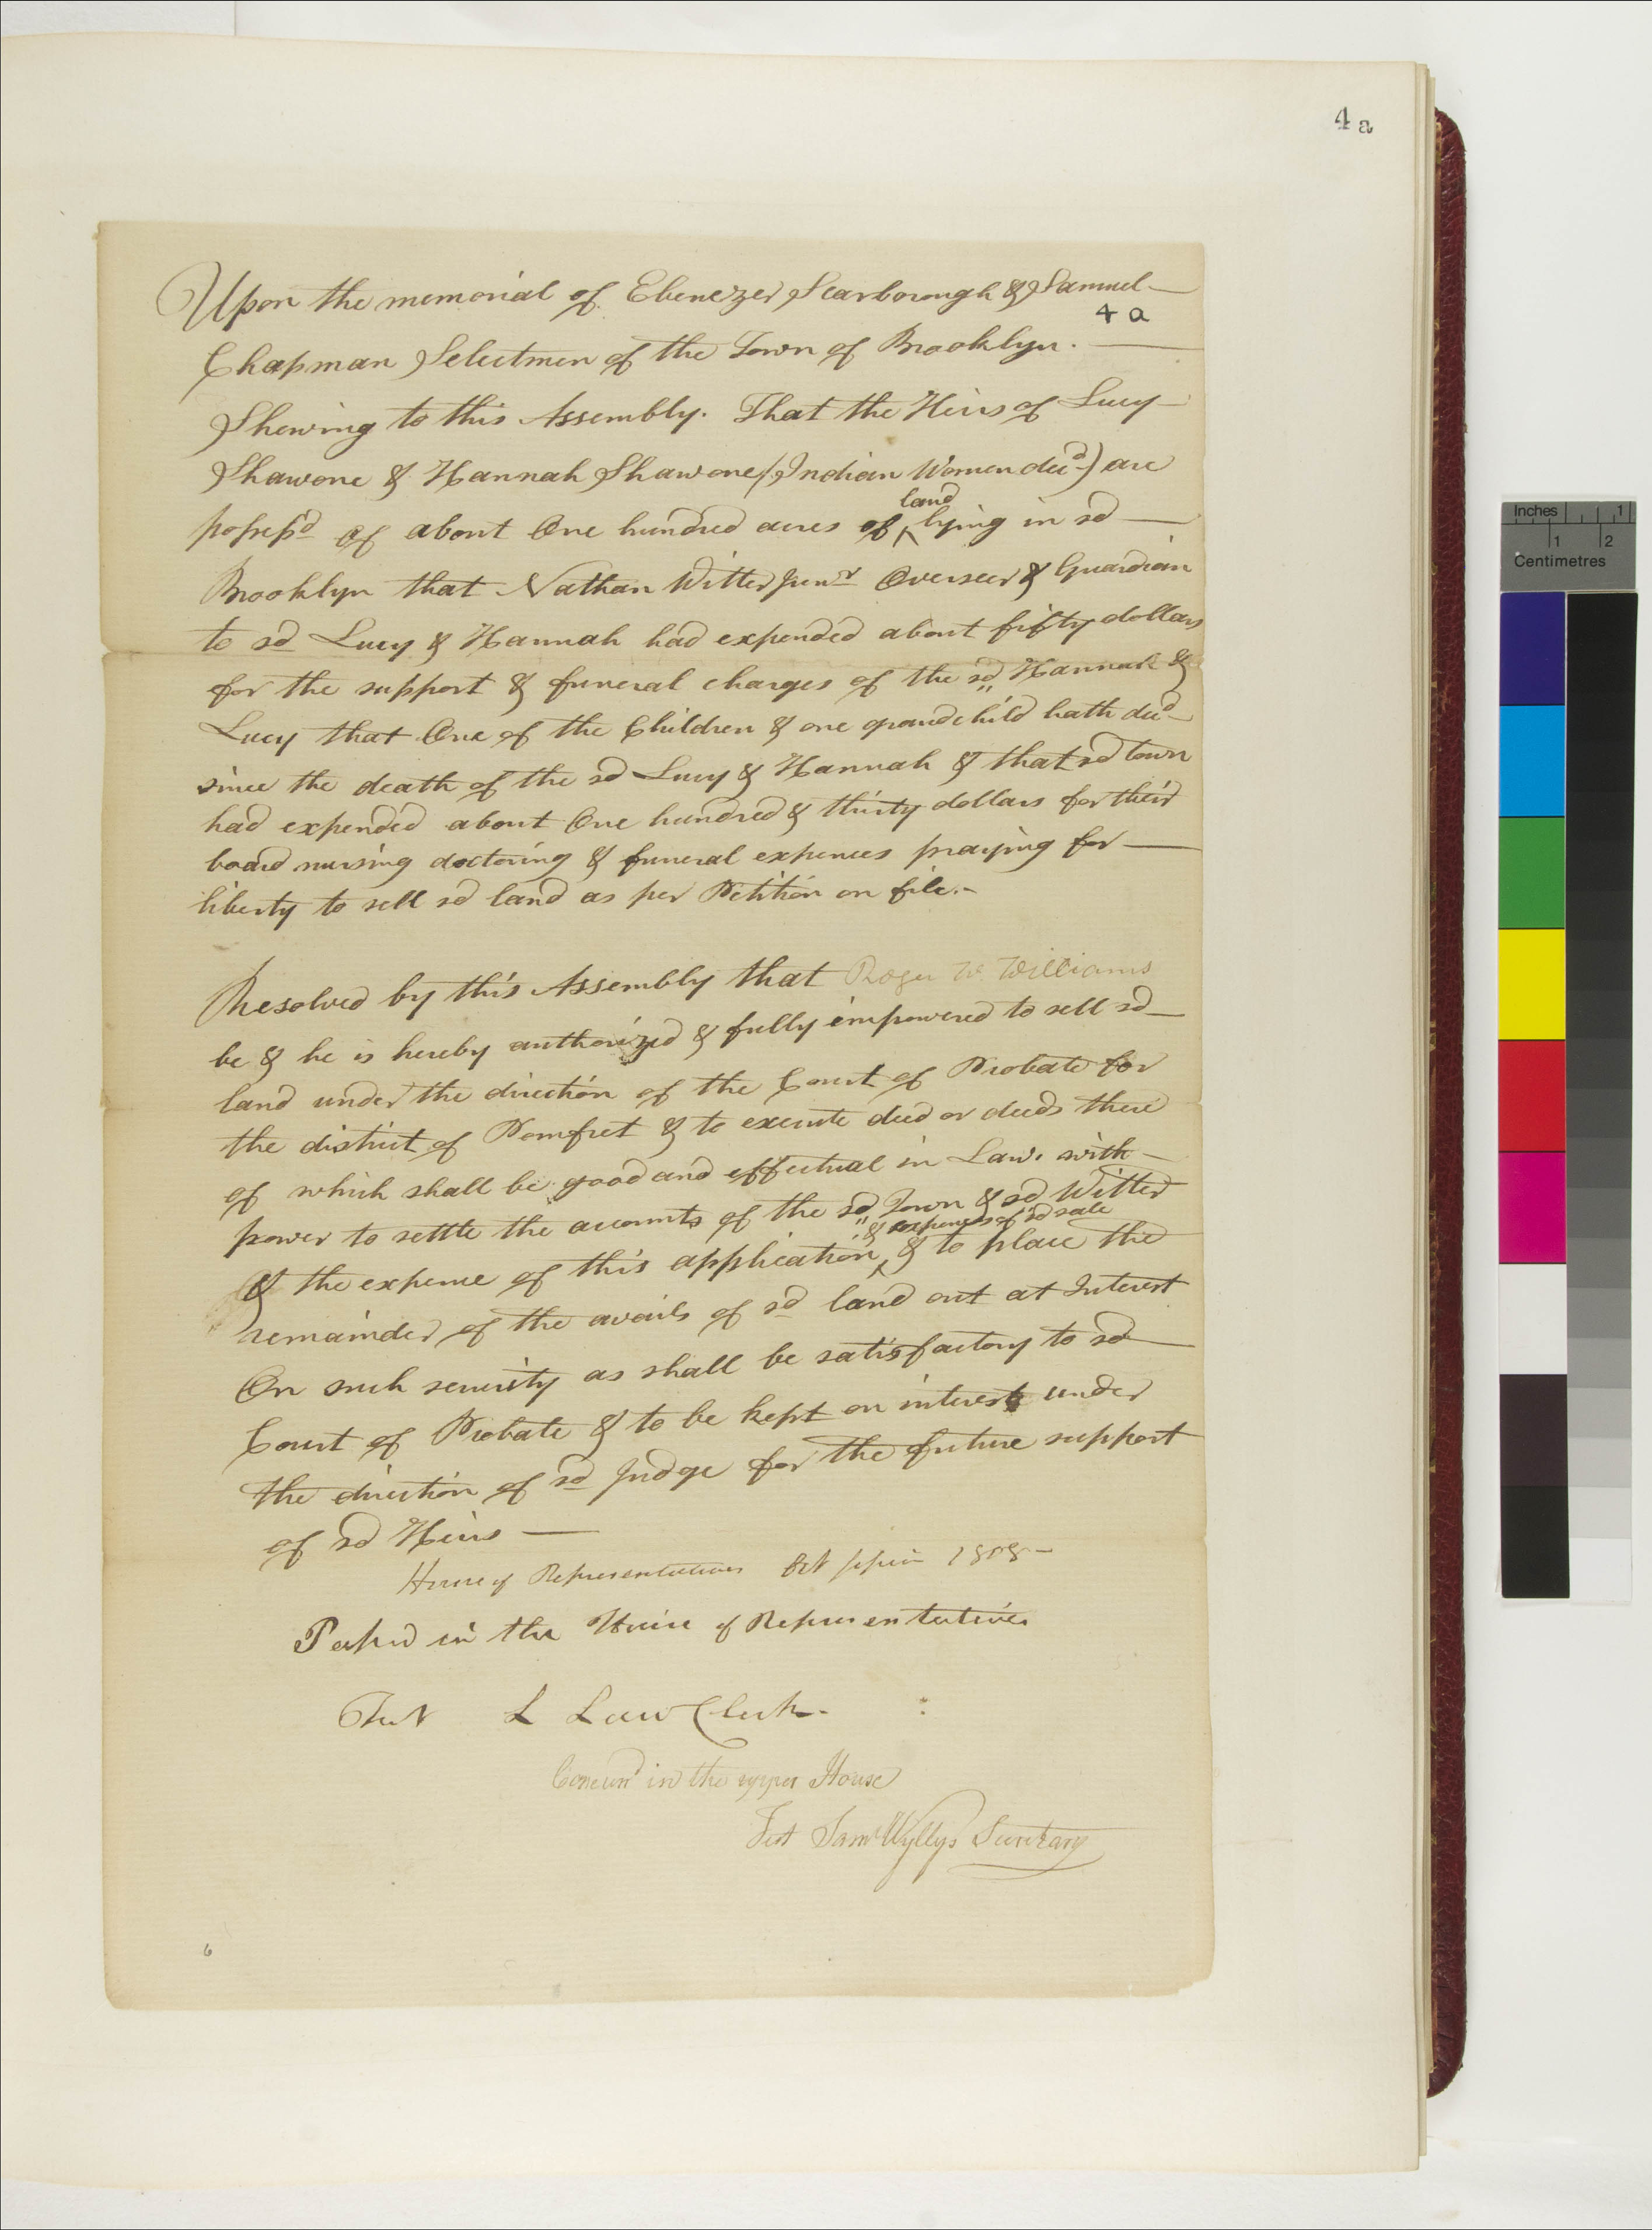 4a
Upon the memorial of Ebenezer Scarborough & Samuel
4a
Chapman Selectmen of the Town of Brooklyn.
Shewing to this Assembly. That the Heirs of Lucy
Shawone & Hannah Shawone (Indian Women decd) are
possessd of about One hundred acres of land lying in sd
Brooklyn that Nathan Witter Junr Overseer & Guardian
to sd Lucy & Hannah had expended about fifty dollars
for the support & funeral charges of the sd Hannah &
Lucy that One of the Children & one grandchild hath decd
since the death of the sd Lucy & Hannah & that sd town
had expended about One hundred & thirty dollars for their
board nursing doctoring & funeral expences praying for
liberty to sell sd land as per Petition on file.
Resolved by this Assembly that Roger W. Williams
be & he is hereby authorized & fully impowered to sell sd
land under the direction of the Court of Probate for
the district of Pomfret & to execute deed or deeds there
of which shall be good and effectual in Law. with
power to settle the accounts of the sd Town & sd Witter
& expences of sd sale
& the expence of this application, & to place the
remainder of the avails of sd land out at Interest
On such security as shall be satisfactory to sd
Court of Probate & to be kept on interest under
the direction of sd Judge for the future support
of sd Heirs
House of Representatives Oct session 1808
Passed in the House of Representatives
Test L Law Clerk.
Concurd in the upper House
Test Saml Wyllys Secretary
6
Inches 1
1 2
Centimetres